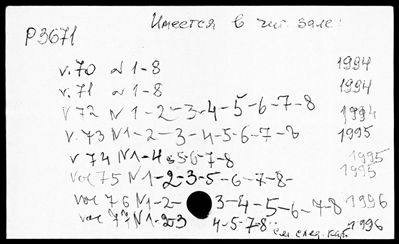 Имеется в чит. зале:
Р3671
v. 70 N 1-8 1994
v. 71 N 1-8 1994
v 72 N 1-2-3-4-5-6-7-8 1994
v. 73 N 1-2-3-4-5-6-7-8 1995
v 74 N 1-4-5-6-7-8 1995
vol 75 N 1-2-3-5-6-7-8- 1995
vol 76 N 1-2- 3-4-5-6-7-8 1996
vol 77 N 1-2-3 4-5-7-8 1996
см. след. кар.